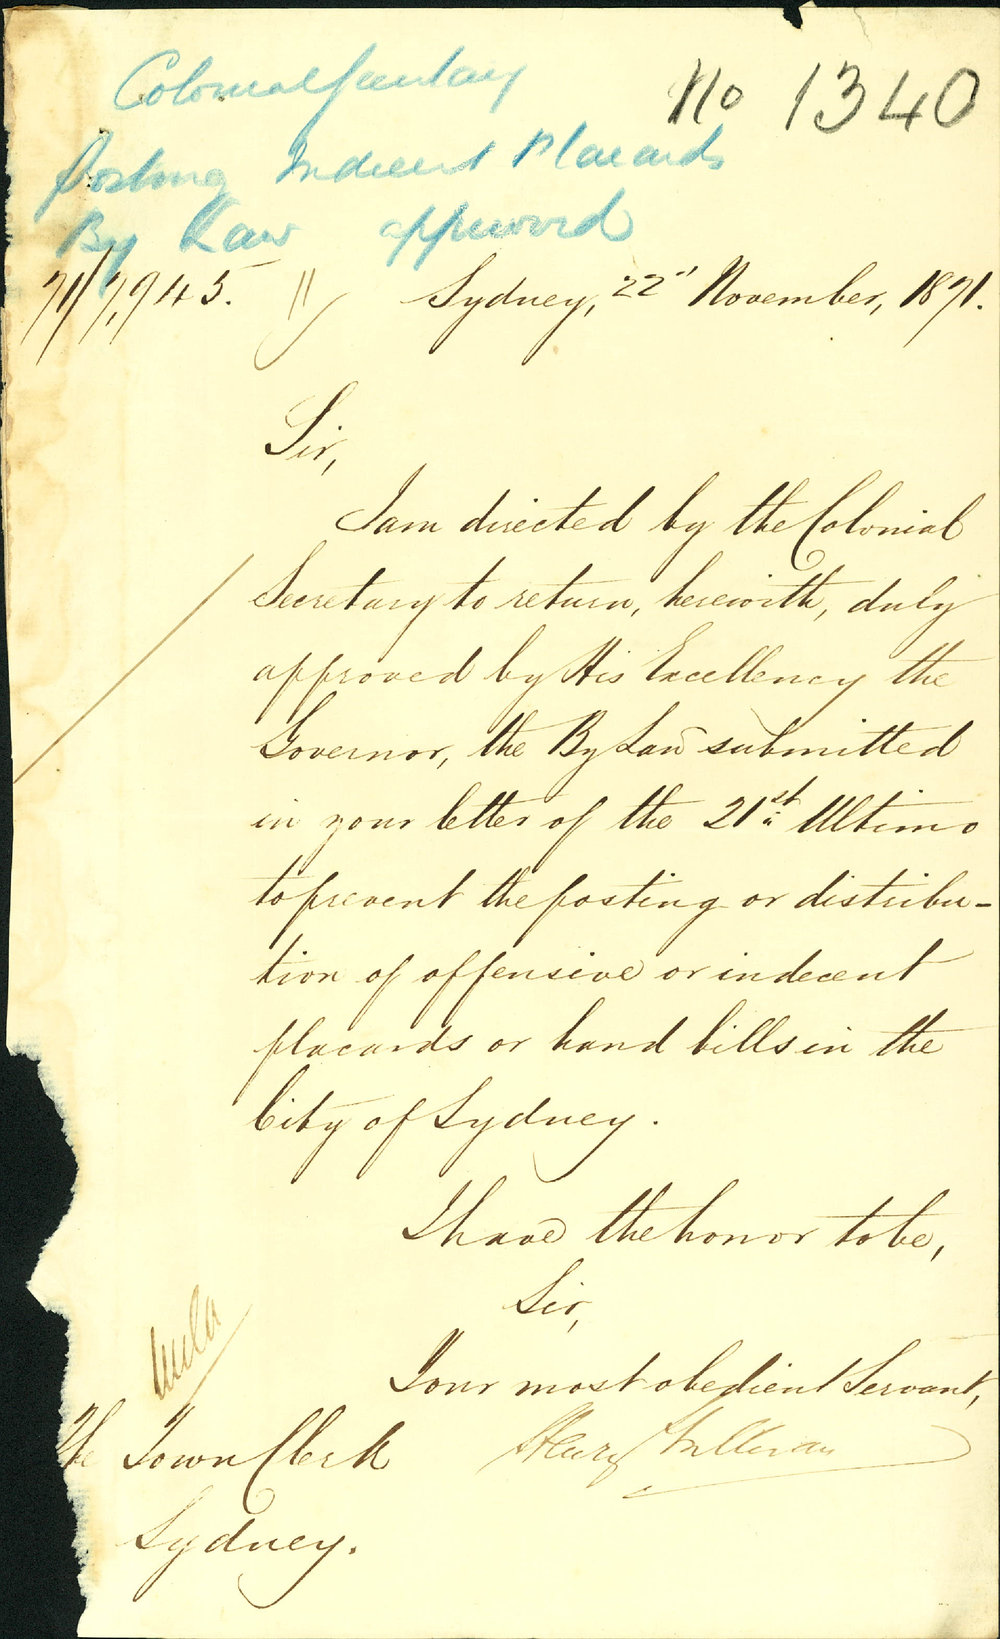 No 1340
Colonial Secretary
Posting Indecent Placards
By Law approved
71/7,945.
Sydney, 22" November, 1871.
Sir,
I am directed by the Colonial
Secretary to return, herewith, duly
approved by His Excellency the
Governor, the By Law submitted
in your letter of the 21st Ultimo
to prevent the posting or distribu-
tion of offensive or indecent
placards or hand bills in the
City of Sydney.
I have the honor to be,
Sir,
Your most obedient Servant,
Henry
The Town Clerk
Sydney.